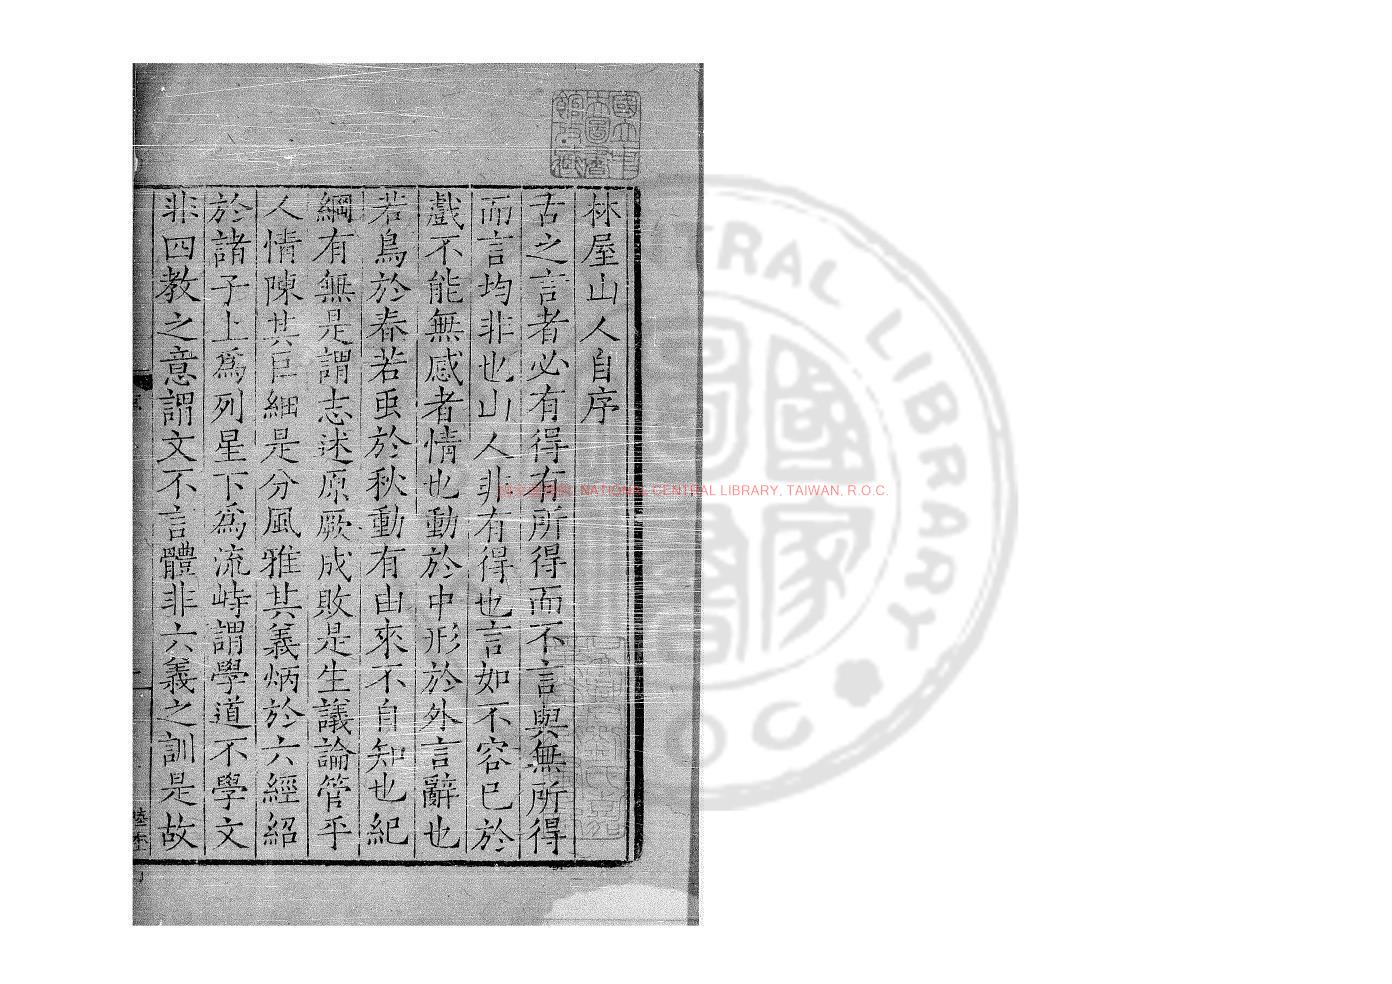 林屋山人自序
古之言者必有得有所得而不言與無所得
而言均非也山人非有得也言如不容已於
戲不能無感者情也動於中形於外言辭也
若鳥於春若虫於秋動有由來不自知也紀
綱有無是謂志述原厥成敗是生議論管乎
人情陳其巨細是分風雅其義炳於六經紹
於諸子上爲列星下爲流峙謂學道不學文
非四教之意謂文不言體非六義之訓是故
國立中央圖書館收藏
NATIONAL CENTRAL LIBRARY, TAIWAN, R.O.C.